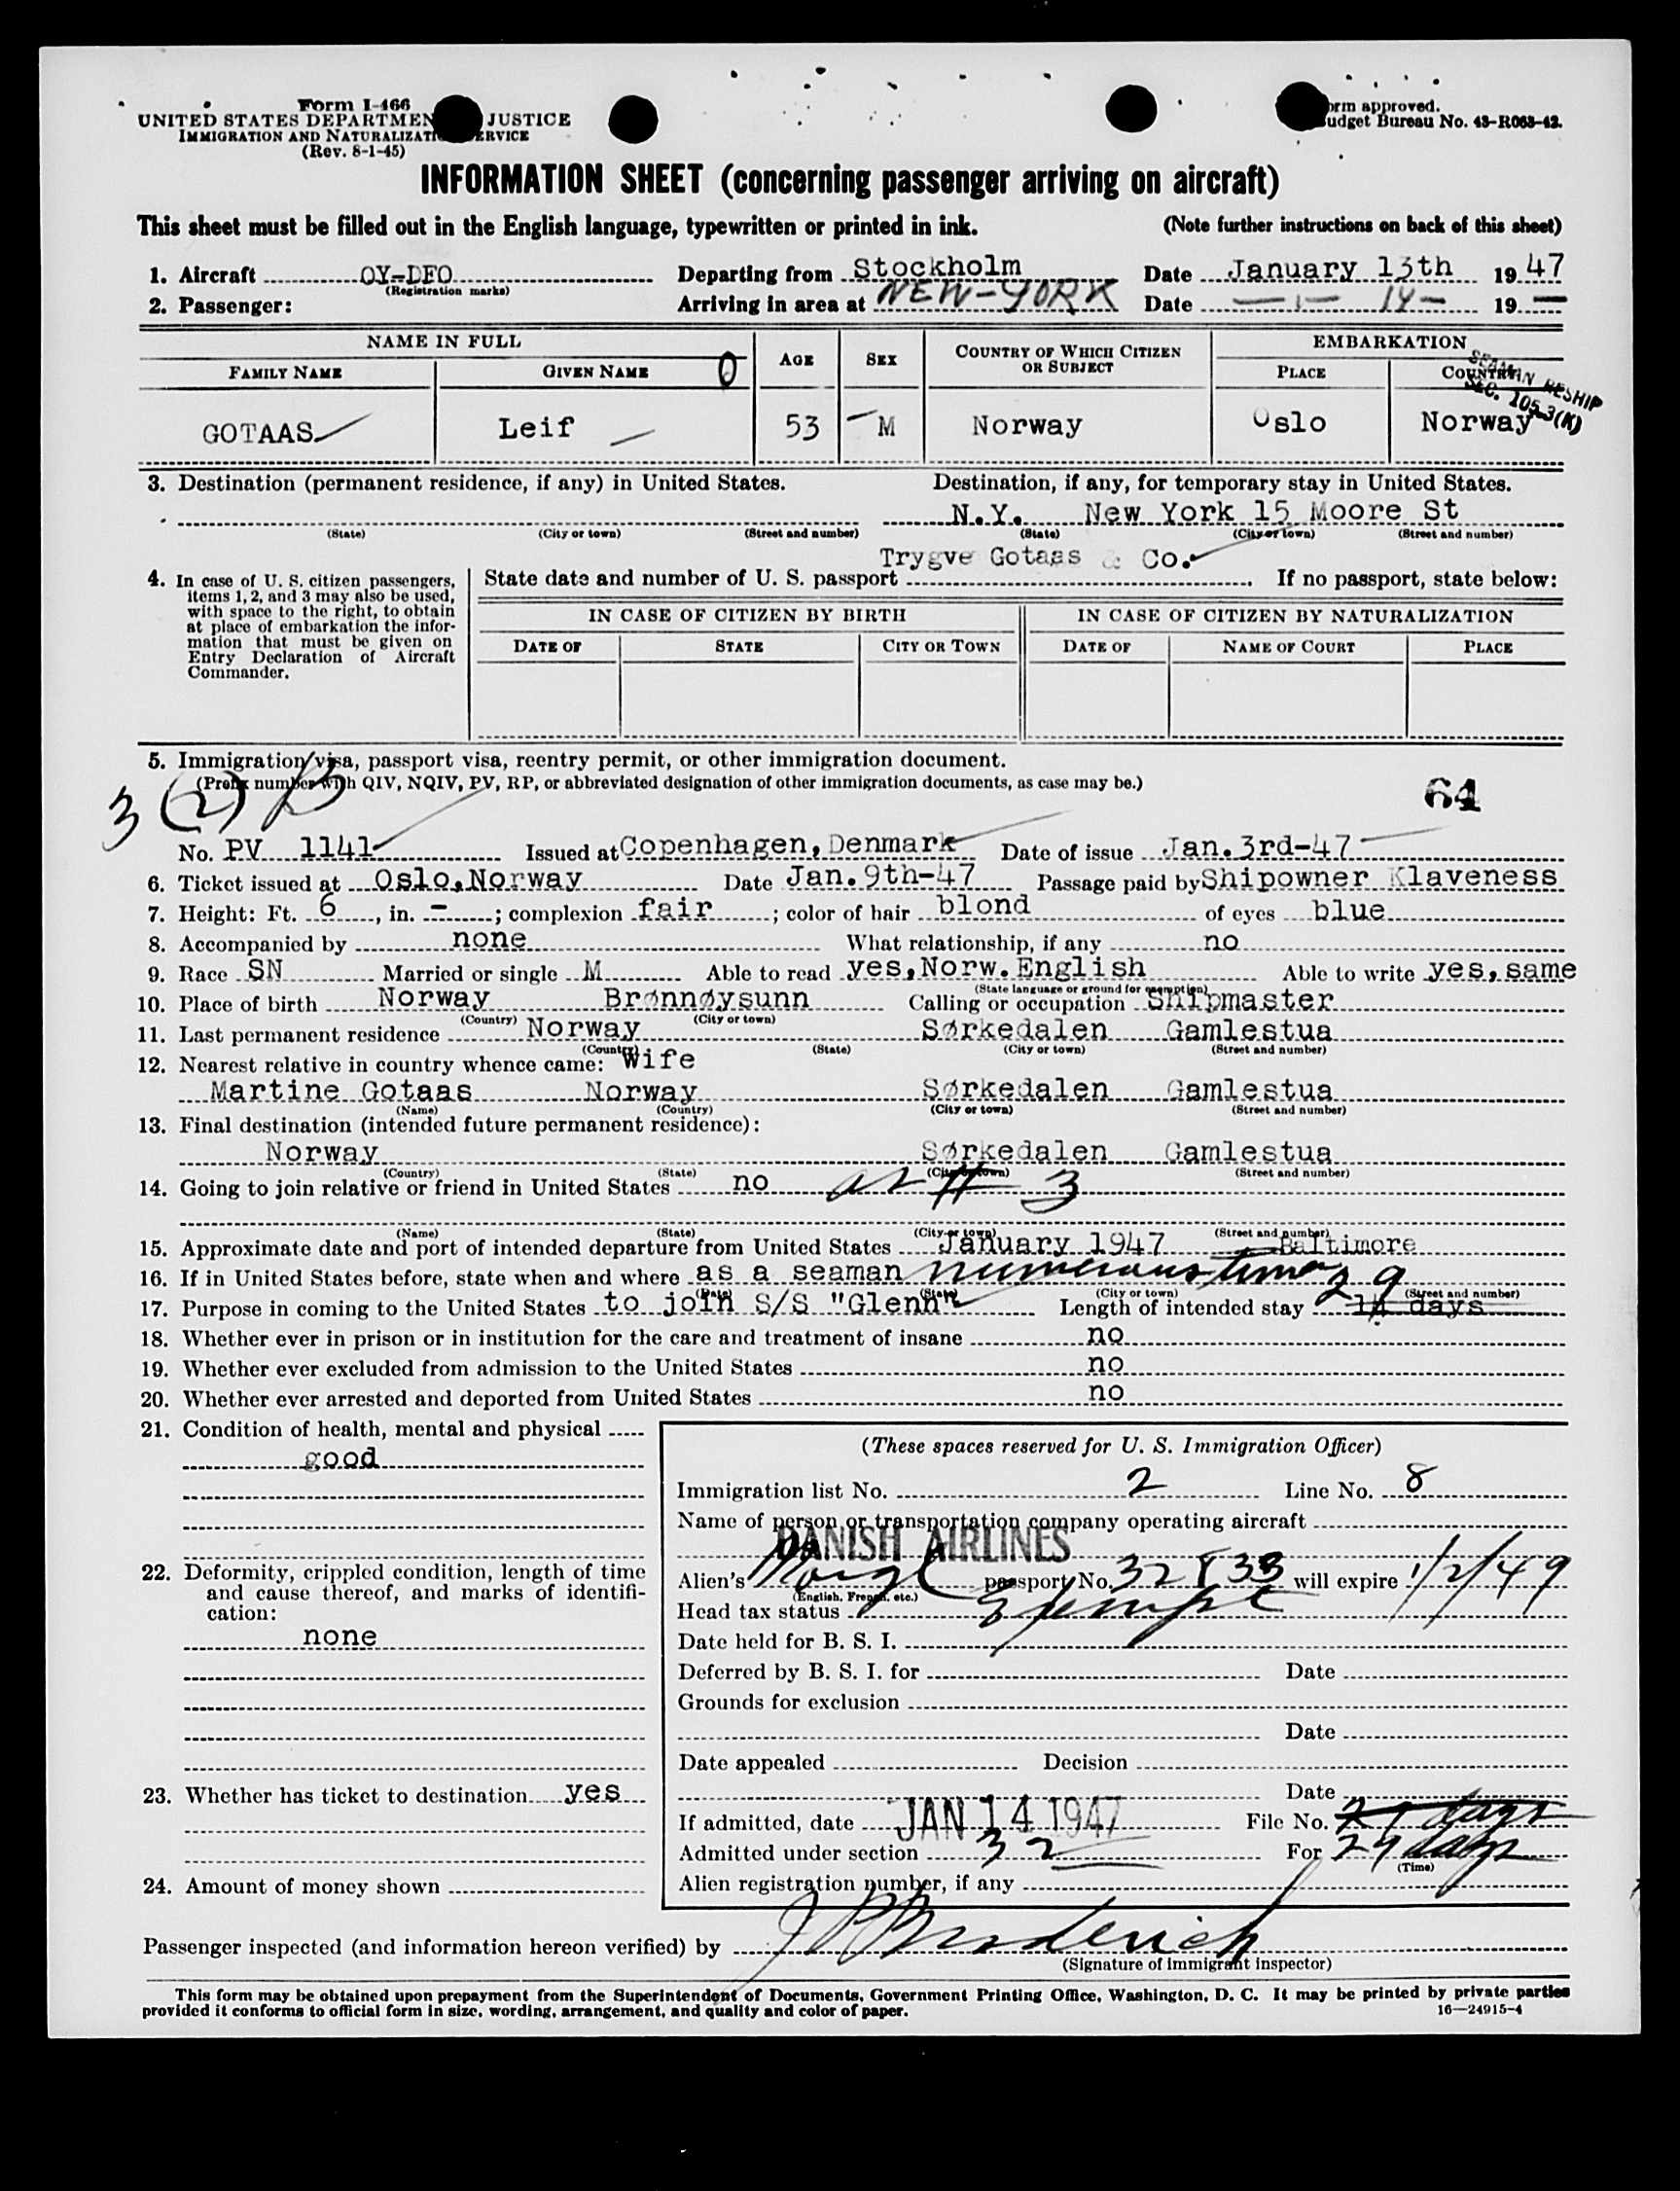 Form I-466
UNITED STATES DEPARTMEN JUSTICE
IMMIGRATION AND NATURALIZATI ERVICE
(Rev. 8-1-45)
orm approved.
udget Bureau No. 43-R063-42.
INFORMATION SHEET (concerning passenger arriving on aircraft)
This sheet must be filled out in the English language, typewritten or printed in ink. (Note further instructions on back of this sheet)
1. Aircraft OY-DFO Departing from Stockholm Date January 13th 19 47
(Registration marks)
2. Passenger: Arriving in area at NEW-YORK Date 14 19
NAME IN FULL AGE SEX COUNTRY OF WHICH CITIZEN OR SUBJECT EMBARKATION
FAMILY NAME GIVEN NAME PLACE COUNTRY
SEAMAN RESHIP
SEC. 105.3(K)
GOTAAS Leif 53 M Norway Oslo Norway
3. Destination (permanent residence, if any) in United States. Destination, if any, for temporary stay in United States.
N.Y. New York 15 Moore St
(State) (City or town) (Street and number) (State) (City or town) (Street and number)
Trygve Gotaas & Co.
4. In case of U. S. citizen passengers, items 1, 2, and 3 may also be used, with space to the right, to obtain at place of embarkation the information that must be given on Entry Declaration of Aircraft Commander.
State date and number of U. S. passport . If no passport, state below:
IN CASE OF CITIZEN BY BIRTH IN CASE OF CITIZEN BY NATURALIZATION
DATE OF STATE CITY OR TOWN DATE OF NAME OF COURT PLACE
5. Immigration visa, passport visa, reentry permit, or other immigration document.
(Prefix number with QIV, NQIV, PV, RP, or abbreviated designation of other immigration documents, as case may be.)
3 (2) B
64
No. PV 1141 Issued at Copenhagen, Denmark Date of issue Jan. 3rd-47
6. Ticket issued at Oslo, Norway Date Jan. 9th-47 Passage paid by Shipowner Klaveness
7. Height: Ft. 6, in. -; complexion fair; color of hair blond of eyes blue
8. Accompanied by none What relationship, if any no
9. Race SN Married or single M Able to read yes, Norw. English Able to write yes, same
(State language or ground for exemption)
10. Place of birth Norway Brønnøysunn Calling or occupation Shipmaster
(Country) (City or town)
11. Last permanent residence Norway Sørkedalen Gamlestua
(Country) (State) (City or town) (Street and number)
12. Nearest relative in country whence came: Wife
Martine Gotaas Norway Sørkedalen Gamlestua
(Name) (Country) (City or town) (Street and number)
13. Final destination (intended future permanent residence):
Norway Sørkedalen Gamlestua
(Country) (State) (City or town) (Street and number)
14. Going to join relative or friend in United States no as # 3
(Name) (State) (City or town) (Street and number)
15. Approximate date and port of intended departure from United States January 1947 Baltimore
16. If in United States before, state when and where as a seaman numerous times
(Date) (State) (City or town) (Street and number)
17. Purpose in coming to the United States to join S/S "Glenn" Length of intended stay 14 days 29
18. Whether ever in prison or in institution for the care and treatment of insane no
19. Whether ever excluded from admission to the United States no
20. Whether ever arrested and deported from United States no
21. Condition of health, mental and physical
good
22. Deformity, crippled condition, length of time and cause thereof, and marks of identification:
none
23. Whether has ticket to destination yes
24. Amount of money shown
(These spaces reserved for U. S. Immigration Officer)
Immigration list No. 2 Line No. 8
Name of person or transportation company operating aircraft
DANISH AIRLINES
Alien's passport No. 32833 will expire 1/2/49
(English, French, etc.)
Head tax status Exempt
Date held for B. S. I.
Deferred by B. S. I. for Date
Grounds for exclusion
Date
Date appealed Decision
Date
If admitted, date JAN 14 1947 File No. 29 days
Admitted under section 3 2 For 29 days
(Time)
Alien registration number, if any
Passenger inspected (and information hereon verified) by
(Signature of immigrant inspector)
This form may be obtained upon prepayment from the Superintendent of Documents, Government Printing Office, Washington, D. C. It may be printed by private parties
provided it conforms to official form in size, wording, arrangement, and quality and color of paper. 16—24915-4